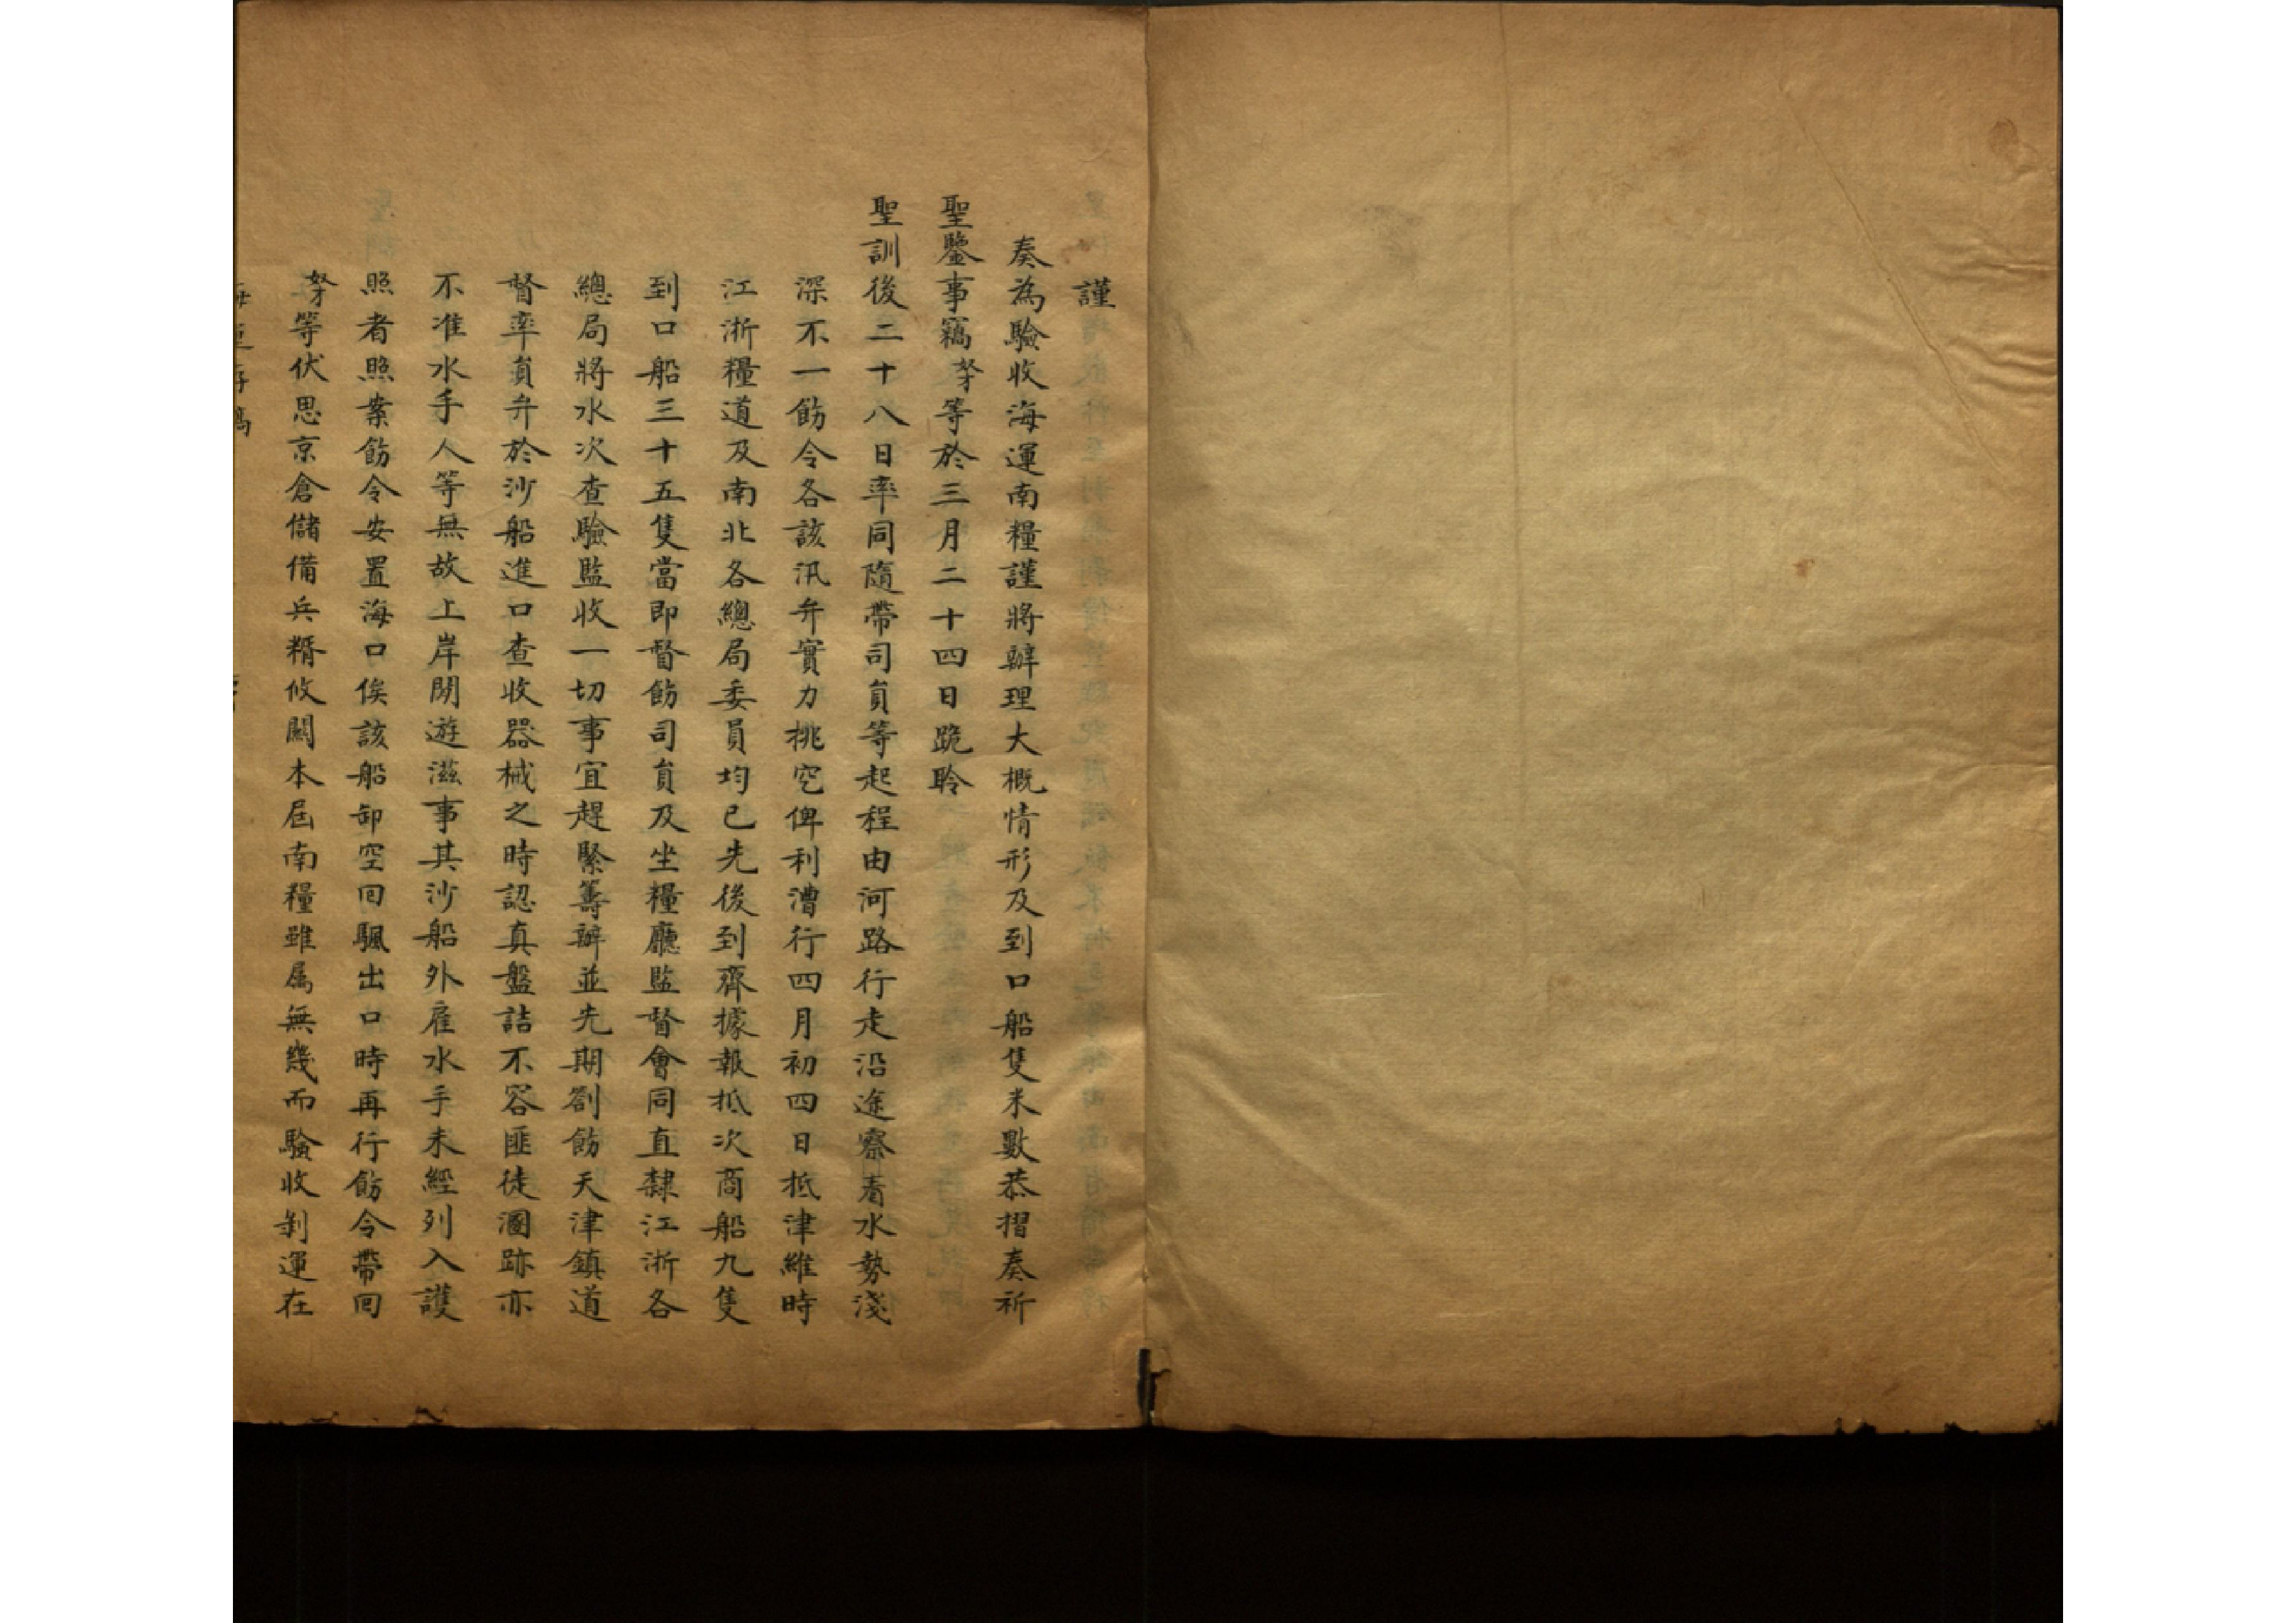 謹
奏為驗收海運南糧謹將辦理大概情形及到口船隻米數恭摺奏祈
聖鑒事竊奴才等於三月二十四日跪聆
聖訓後二十八日率同隨帶司員等起程由河路行走沿途察看水勢淺
深不一飭令各該汛弁實力挑挖俾利漕行四月初四日抵津維時
江浙糧道及南北各總局委員均已先後到齊據報抵次商船九隻
到口船三十五隻當即督飭司員及坐糧廳監督會同直隸江浙各
總局將水次查驗監收一切事宜趕緊籌辦並先期劄飭天津鎮道
督率員弁於沙船進口查收器械之時認真盤詰不容匪徒溷跡亦
不准水手人等無故上岸閒遊滋事其沙船外雇水手未經列入護
照者照案飭令安置海口俟該船卸空回颿出口時再行飭令帶回
奴才等伏思京倉儲備兵糈攸關本屆南糧雖属無幾而驗收剝運在